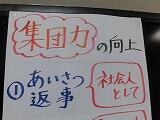 集団力の向上
①あいさつ
返事
社会人
として